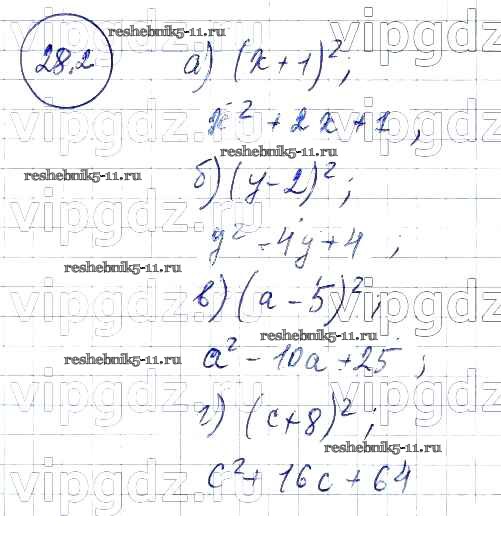 reshebnik5-11.ru
vipgdz
28.2
а) (x + 1)²;
vipgdz vipgdz
x² + 2x + 1,
reshebnik5-11.ru
reshebnik5-11.ru
б) (y - 2)²;
vipgdz.ru vipgdz
y² - 4y + 4;
reshebnik5-11.ru
в) (a - 5)²;
vipgdz vipgdz
reshebnik5-11.ru
reshebnik5-11.ru
a² - 10a + 25;
vipgdz vipgdz
г) (c + 8)²;
reshebnik5-11.ru
vipgdz.ru vipgdz
c² + 16c + 64